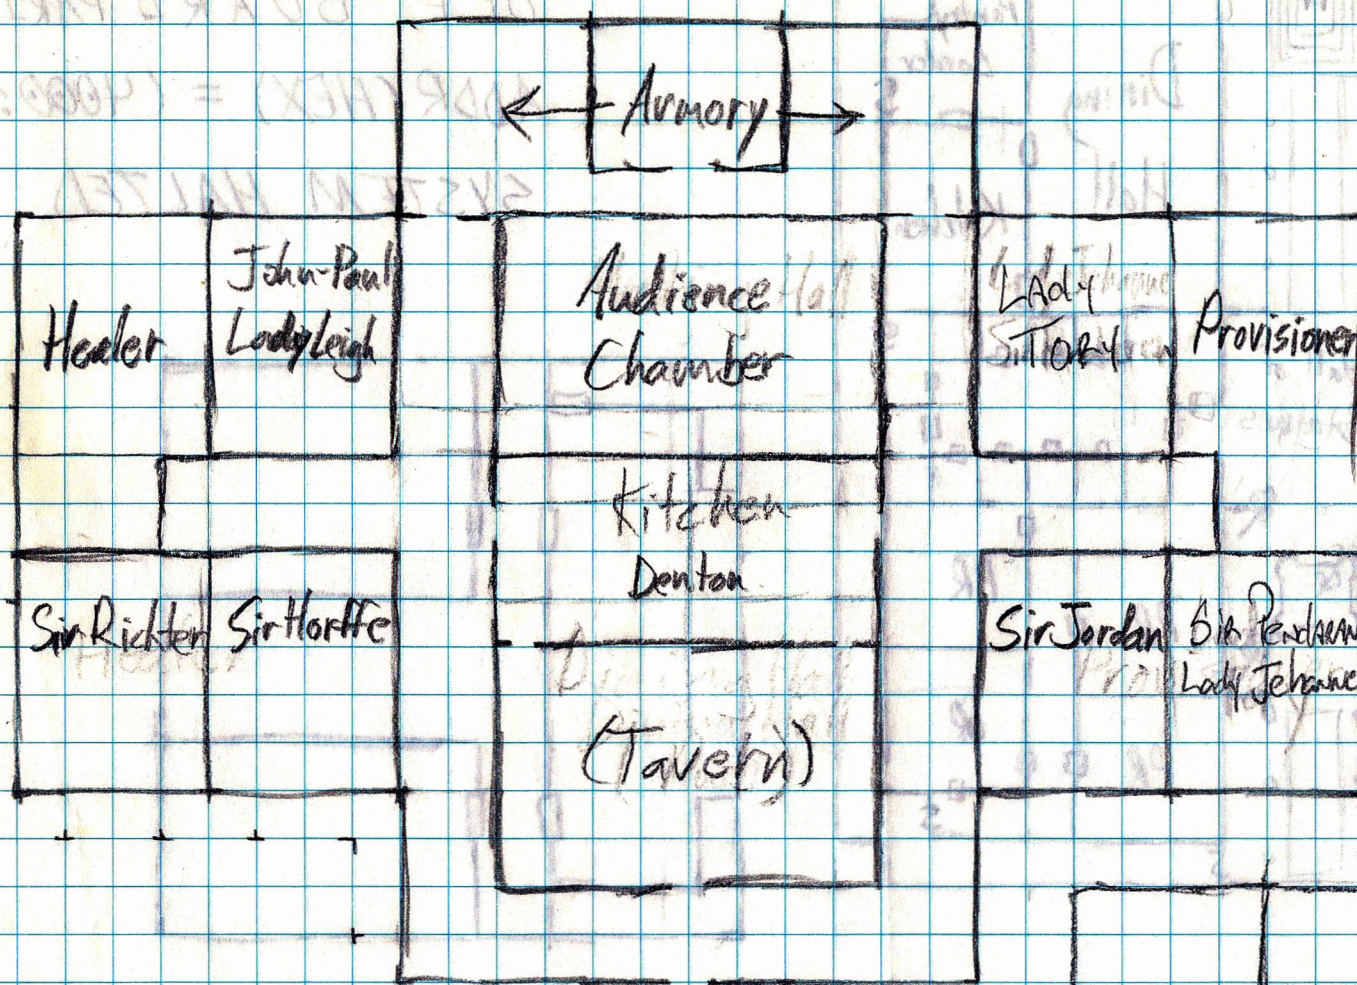 Armory
Healer
John-Paul
Lady Leigh
Audience
Chamber
LADY
TORY
Provisioner
Kitchen
Denton
Sir Richter
Sir Horffe
Sir Jordan
SIR PENDARAN
Lady Jehanne
(Tavern)